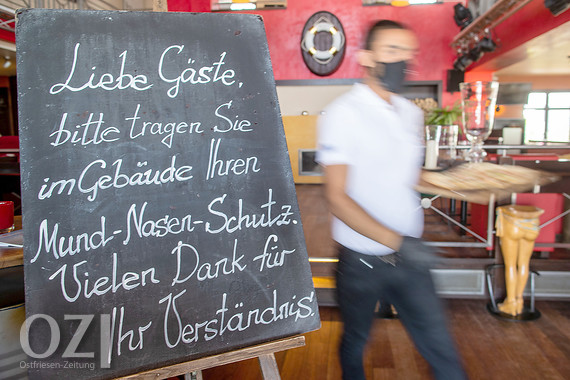 Liebe Gäste,
bitte tragen Sie
im Gebäude Ihren
Mund-Nasen-Schutz.
Vielen Dank für
Ihr Verständnis.
OZ
Ostfriesen-Zeitung